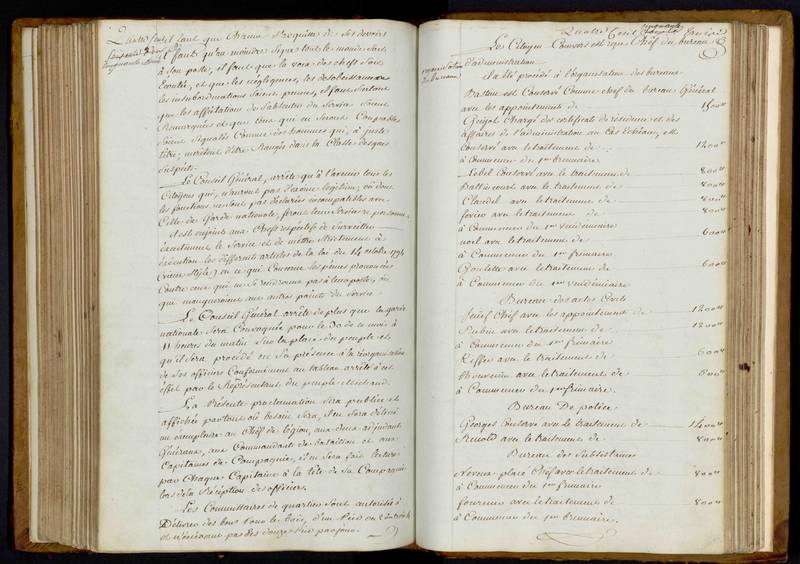 il faut que chacun s'acquitte de ses devoirs
il faut qu'au moindre signe tout le monde soit
à son poste, il faut que la voix des chefs soit
Ecoutée, et que les négligences, les desobeissances
les insubordinations soient punies, il faut surtout
que les affectations de s'absenter du service soient
Remarquées et que ceux qui en seront Coupables
soient signalés Comme des hommes qui, à juste
titre, meritent d'être Rangés dans la Classe des gens
suspects.
Le Conseil Général, arrête qu'à l'avenir tous les
Citoyens qui, n'auront pas d'excuse legitime, ou dont
les fonctions ne sont pas déclarées incompatibles avec
Celle de Garde nationale, feront leur Service en personne
il est enjoint aux Chefs respectifs de Surveiller
exactement le Service et de mettre strictement à
éxécution les differents articles de la loi du 14 octobre 1791
(vieux style) en ce qui Concerne les peines prononcées
Contre ceux qui ne se rendront pas à leur poste, ou
qui manqueroient aux autres points du Service
Le Conseil Général arrête de plus que la garde
nationale sera Convoquée pour le 30 de ce mois à
11 heures du matin sur la place du peuple et
qu'il sera procédé en sa présence à la réorganisation
de ses officiers Conformément au tableau arrêté à cet
effet par le Représentant du peuple
La Présente proclamation sera publiée et
affichée partout où besoin sera, il en sera délivré
un exemplaire au Chef de légion, aux deux adjudants
Généraux, aux Commandants de bataillon et aux
Capitaines de Compagnies, il en sera fait lecture
par Chaque Capitaine à la tête de sa Compagnie
lors de la Réception des officiers.
Les Commissaires de quartier sont autorisés à
Délivrer des bons pour le bois
Quatre Cent cinquante
Le Citoyen Couvers est reçu Chef du bureau
d'administration
organisation des Bureaux
Il a été procédé à l'organisation des bureaux
Bastien est Conservé Comme chef du bureau Général
avec les appointements de 1500"
Guijot Chargé des certificats de résidence et des
affaires de l'administration est
Conservé avec le traitement de 1200
à Commencer du 1er brumaire
Lebel Conservé avec le traitement de 800"
Battincourt avec le traitement de 800"
Claudel avec le traitement de 800"
avec le traitement de 800"
à Commencer du 1er vendémiaire
noel avec le traitement de 600"
à Commencer du 1er frimaire
Goulette avec le traitement de 600"
à Commencer du 1er vendémiaire
Bureau des actes Civils
Chef avec les appointements de 1200"
Aubin avec le traitement de 1200"
à Commencer du 1er frimaire
Kiffer avec le traitement de 600"
Thouvenin avec le traitement de 600"
à Commencer du 1er frimaire.
Bureau De police
Georges Conservé avec le traitement de 1400"
Renold avec le traitement de 800"
Bureau des Subsistances
placé Chef avec le traitement de 800"
à Commencer du 1er frimaire
fournier avec le traitement de 800"
à Commencer du 1er brumaire.